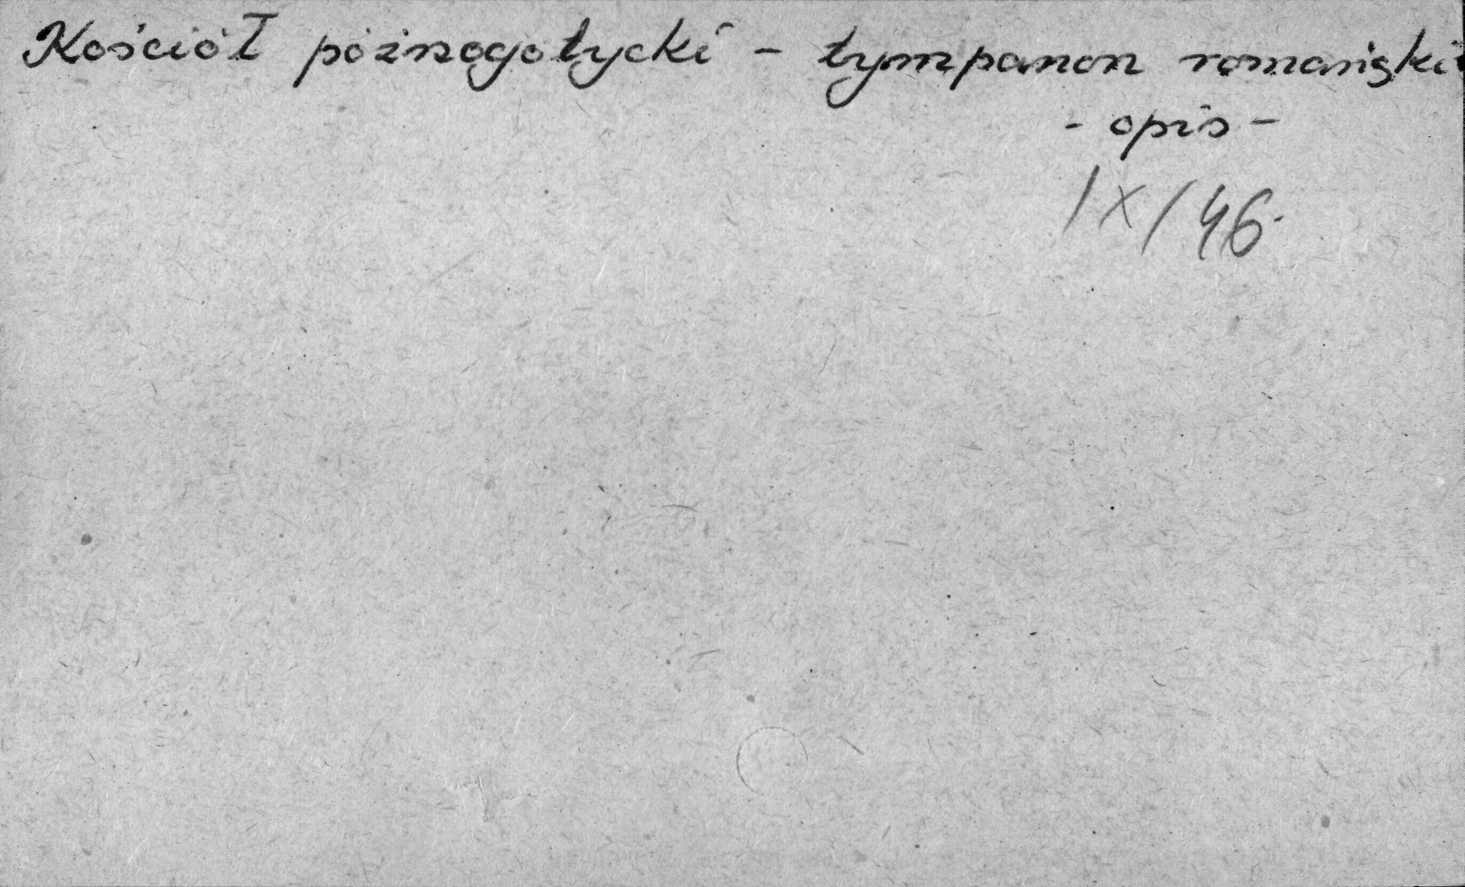 Kościół późnogotycki – tympanon romański
- opis -
IX/46.